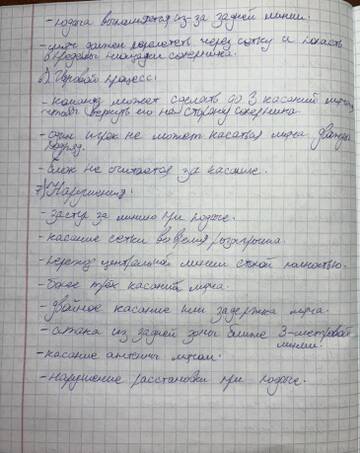 - подача выполняется из-за задней линии.
- мяч должен перелететь через сетку и попасть
в пределы площадки соперника.
6) Игровой процесс:
- команда может сделать до 3 касаний мяча
чтобы вернуть его на сторону соперника.
- один игрок не может касаться мяча дважды
подряд.
- блок не считается за касание.
7) Нарушения:
- заступ за линию при подаче.
- касание сетки во время розыгрыша.
- переход центральной линии стопой полностью.
- более трёх касаний мяча.
- двойное касание или задержка мяча.
- атака из задней зоны ближе 3-метровой
линии.
- касание антенны мячом.
- нарушение расстановки при подаче.